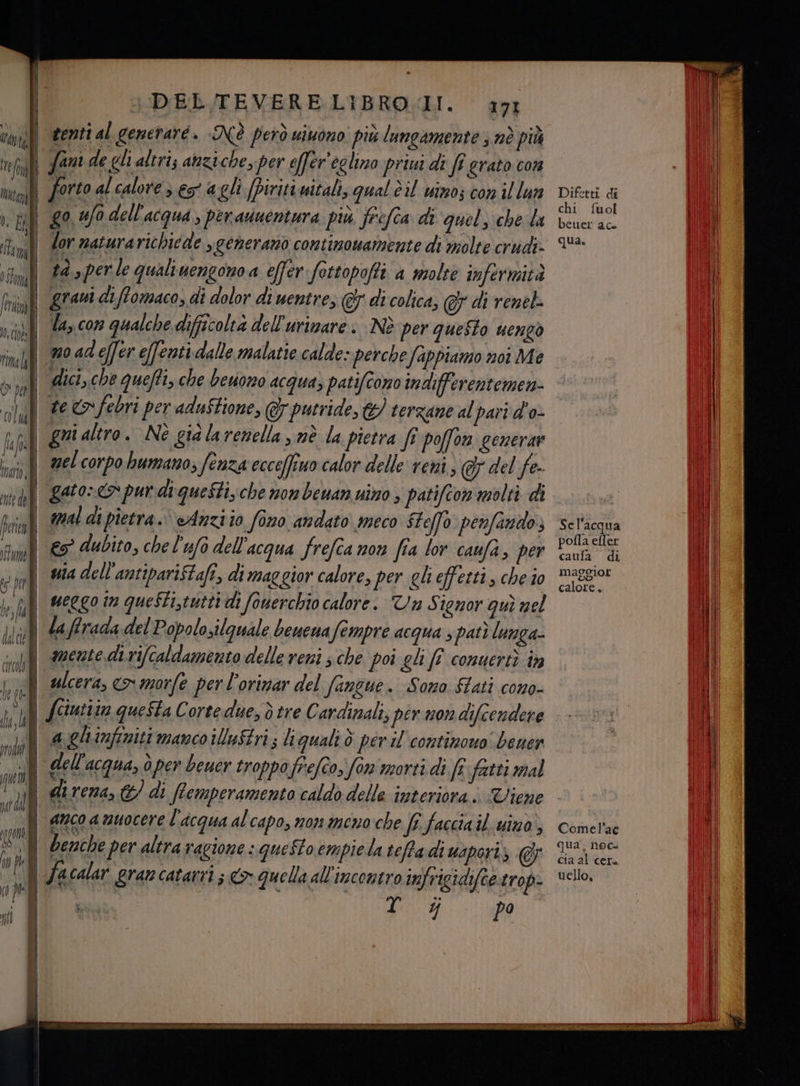 DEL TEVERE LIBRO II. 171
tenti al generare. Nè però uiuono più lungamente, nè più
sani de gli altri; anziche, per esser'eglino priui di sì grato con
forto al calore, & a gli spiriti uitali, qual è il uino; con il lun
go uso dell'acqua, perauuentura più fresca di quel, che la
lor natura richiede, generano continouamente di molte crudi-
tà, per le quali uengono a esser sottoposti a molte infermità
graui di stomaco, di dolor di uentre, & di colica, & di renel-
la, con qualche difficoltà dell'urinare. Nè per questo uengo
no ad esser essenti dalle malatie calde: perche sappiamo noi Me
dici, che questi, che beuono acqua, patiscono indifferentemen-
te & febri per adustione, & putride, & terzane al pari d'o-
gni altro. Nè già la renella, nè la pietra si posson generar
nel corpo humano, senza eccessiuo calor delle reni, & del fe-
gato: & pur di questi, che non beuan uino, patiscon molti di
mal di pietra. Anzi io sono andato meco stesso pensando,
& dubito, che l'uso dell'acqua fresca non sia lor causa, per
uia dell'antiparistasi, di maggior calore, per gli effetti, che io
ueggo in questi, tutti di souerchio calore. Un Signor quì nel
la strada del Popolo, ilquale beueua sempre acqua, patì lunga-
mente di riscaldamento delle reni, che poi gli si conuertì in
ulcera, & morse per l'orinar del sangue. Sono stati cono-
sciuti in questa Corte due, ò tre Cardinali, per non discendere
a gli infiniti manco illustri; li quali ò per il continouo beuer
dell'acqua, ò per beuer troppo fresco, son morti di sì fatti mal
di rena, & di stemperamento caldo delle interiora. Viene
anco a nuocere l'acqua al capo, non meno che si faccia il uino,
benche per altra ragione: questo empie la testa di uapori, &
fa calar gran catarri; & quella all'incontro infrigidisce trop-
Y ij po
Difetti di
chi suol
beuer ac-
qua.
Se l'acqua
possa esser
causa di
maggior
calore.
Come l'ac
qua, noc-
cia al cer-
uello.